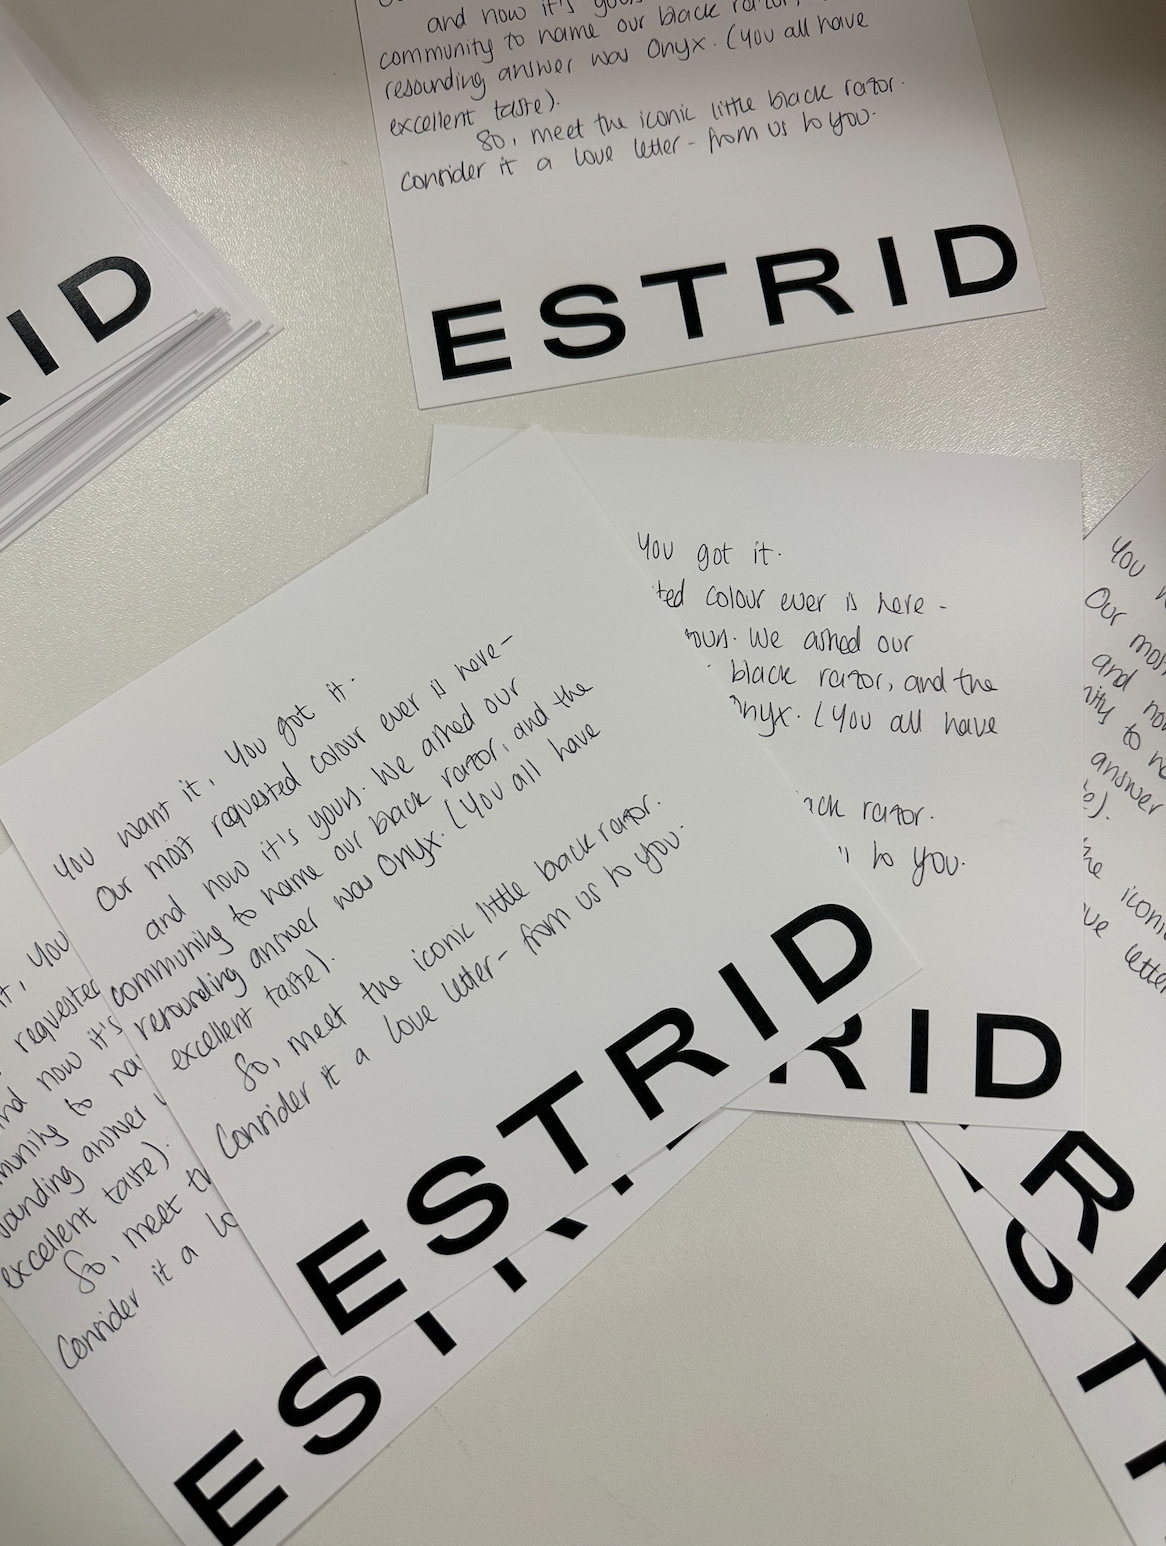 and now it's
community to name our black razor,
resounding answer was Onyx. (you all have
excellent taste).
So, meet the iconic little black razor.
Consider it a love letter - from us to you.
ESTRID
ID
You want it, you got it.
Our most requested colour ever is here -
and now it's yours. We asked our
community to name our black razor, and the
resounding answer was Onyx. (You all have
excellent taste).
So, meet the iconic little black razor.
Consider it a love letter - from us to you.
ESTRID
You got it.
colour ever is here -
We asked our
black razor, and the
Onyx. (You all have
razor.
to you.
RID
you
requested
now it's
to
answer
excellent taste).
So, meet
Consider it a
EST
You
Our
and
to
answer
letter
R